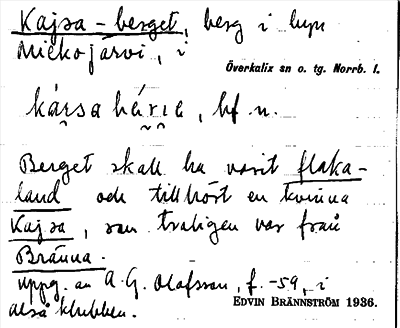 Kajsa-berget, berg i byn
Mickojärvi, i
Överkalix sn o. tg. Norrb. l.
bf. n.
Berget skall ha varit flaka-
land och tillhört en kvinna
Kajsa, som troligen var från
Bränna.
uppg. av A. G. Olofsson, f. -59, i
EDVIN BRÄNNSTRÖM 1936.